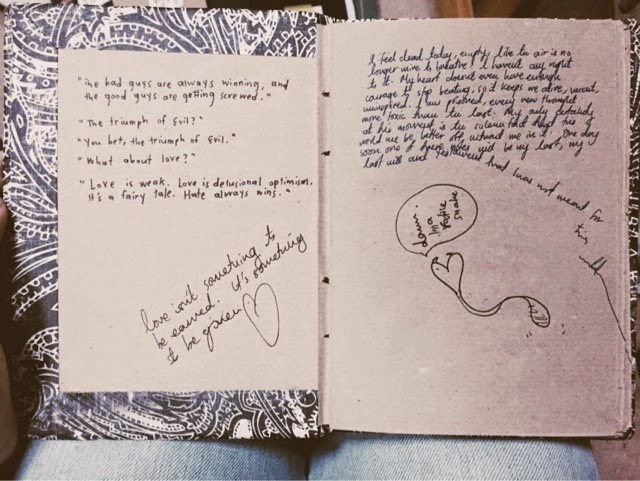 "The bad guys are always winning, and
the good guys are getting screwed."
"The triumph of Evil?"
"You bet, the triumph of Evil."
"What about love?"
"Love is weak. Love is delusional optimism.
It's a fairy tale. Hate always wins."
love isnt something to
be earned. it's something
to be given
I feel dead today, empty, like the air is no
longer mine to breathe. I havent any right
to it. My heart doesnt even have enough
courage to stop beating, so it keeps me alive, vacant,
uninspired. I am poisoned, every new thought
more toxic than the last. My only certainty
at this moment is the solemn fact that this
world be better off without me in it. One day
soon one of these notes will be my last, my
last will and testament that I was not meant for
this world
damn.
im a
rattle
snake